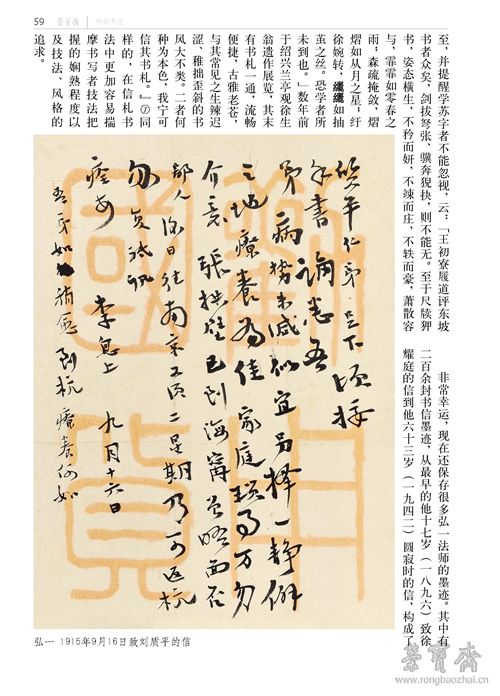 59
荣宝斋
至，并提醒学苏字者不能忽视，云：「王初寮履道评东坡
书者众矣，剑拔弩张，骥奔猊抉，则不能无。至于尺牍狎
书，姿态横生，不矜而妍，不辣而庄，不轶而豪，萧散容
与，霏霏如零春之
雨；森疏掩敛，熠
熠如从月之星；纡
徐婉转，纚纚如抽
茧之丝。恐学者所
未到也。」数年前
于绍兴兰亭观徐生
翁遗作展览，其末
有书札一通，流畅
便捷，古雅老苍，
与其常见之生辣迟
涩、稚拙歪斜的书
风大不类。二者何
种为本色，我宁可
信其书札。』⑦同
样的，在信札书
法中更加容易揣
摩书写者技法把
握的娴熟程度以
及技法、风格的
追求。
非常幸运，现在还保存很多弘一法师的墨迹。其中有
二百余封书信墨迹，从最早的他十七岁（一八九六）致徐
耀庭的信到他六十三岁（一九四二）圆寂时的信，构成了
质平仁弟足下顷接
手书诵悉吾
弟病势未减似宜另择一静僻
之地疗养为佳家庭琐事万勿
介意张拱璧已到海宁曾略面否
鄙人侭日往南京又须二星期乃可返杭
勿复祗讯
痊安
李息上
九月十六日
吾弟如稍愈到杭疗养何如
弘一 1915年9月16日致刘质平的信
荣宝斋
www.rongbaozhai.cn